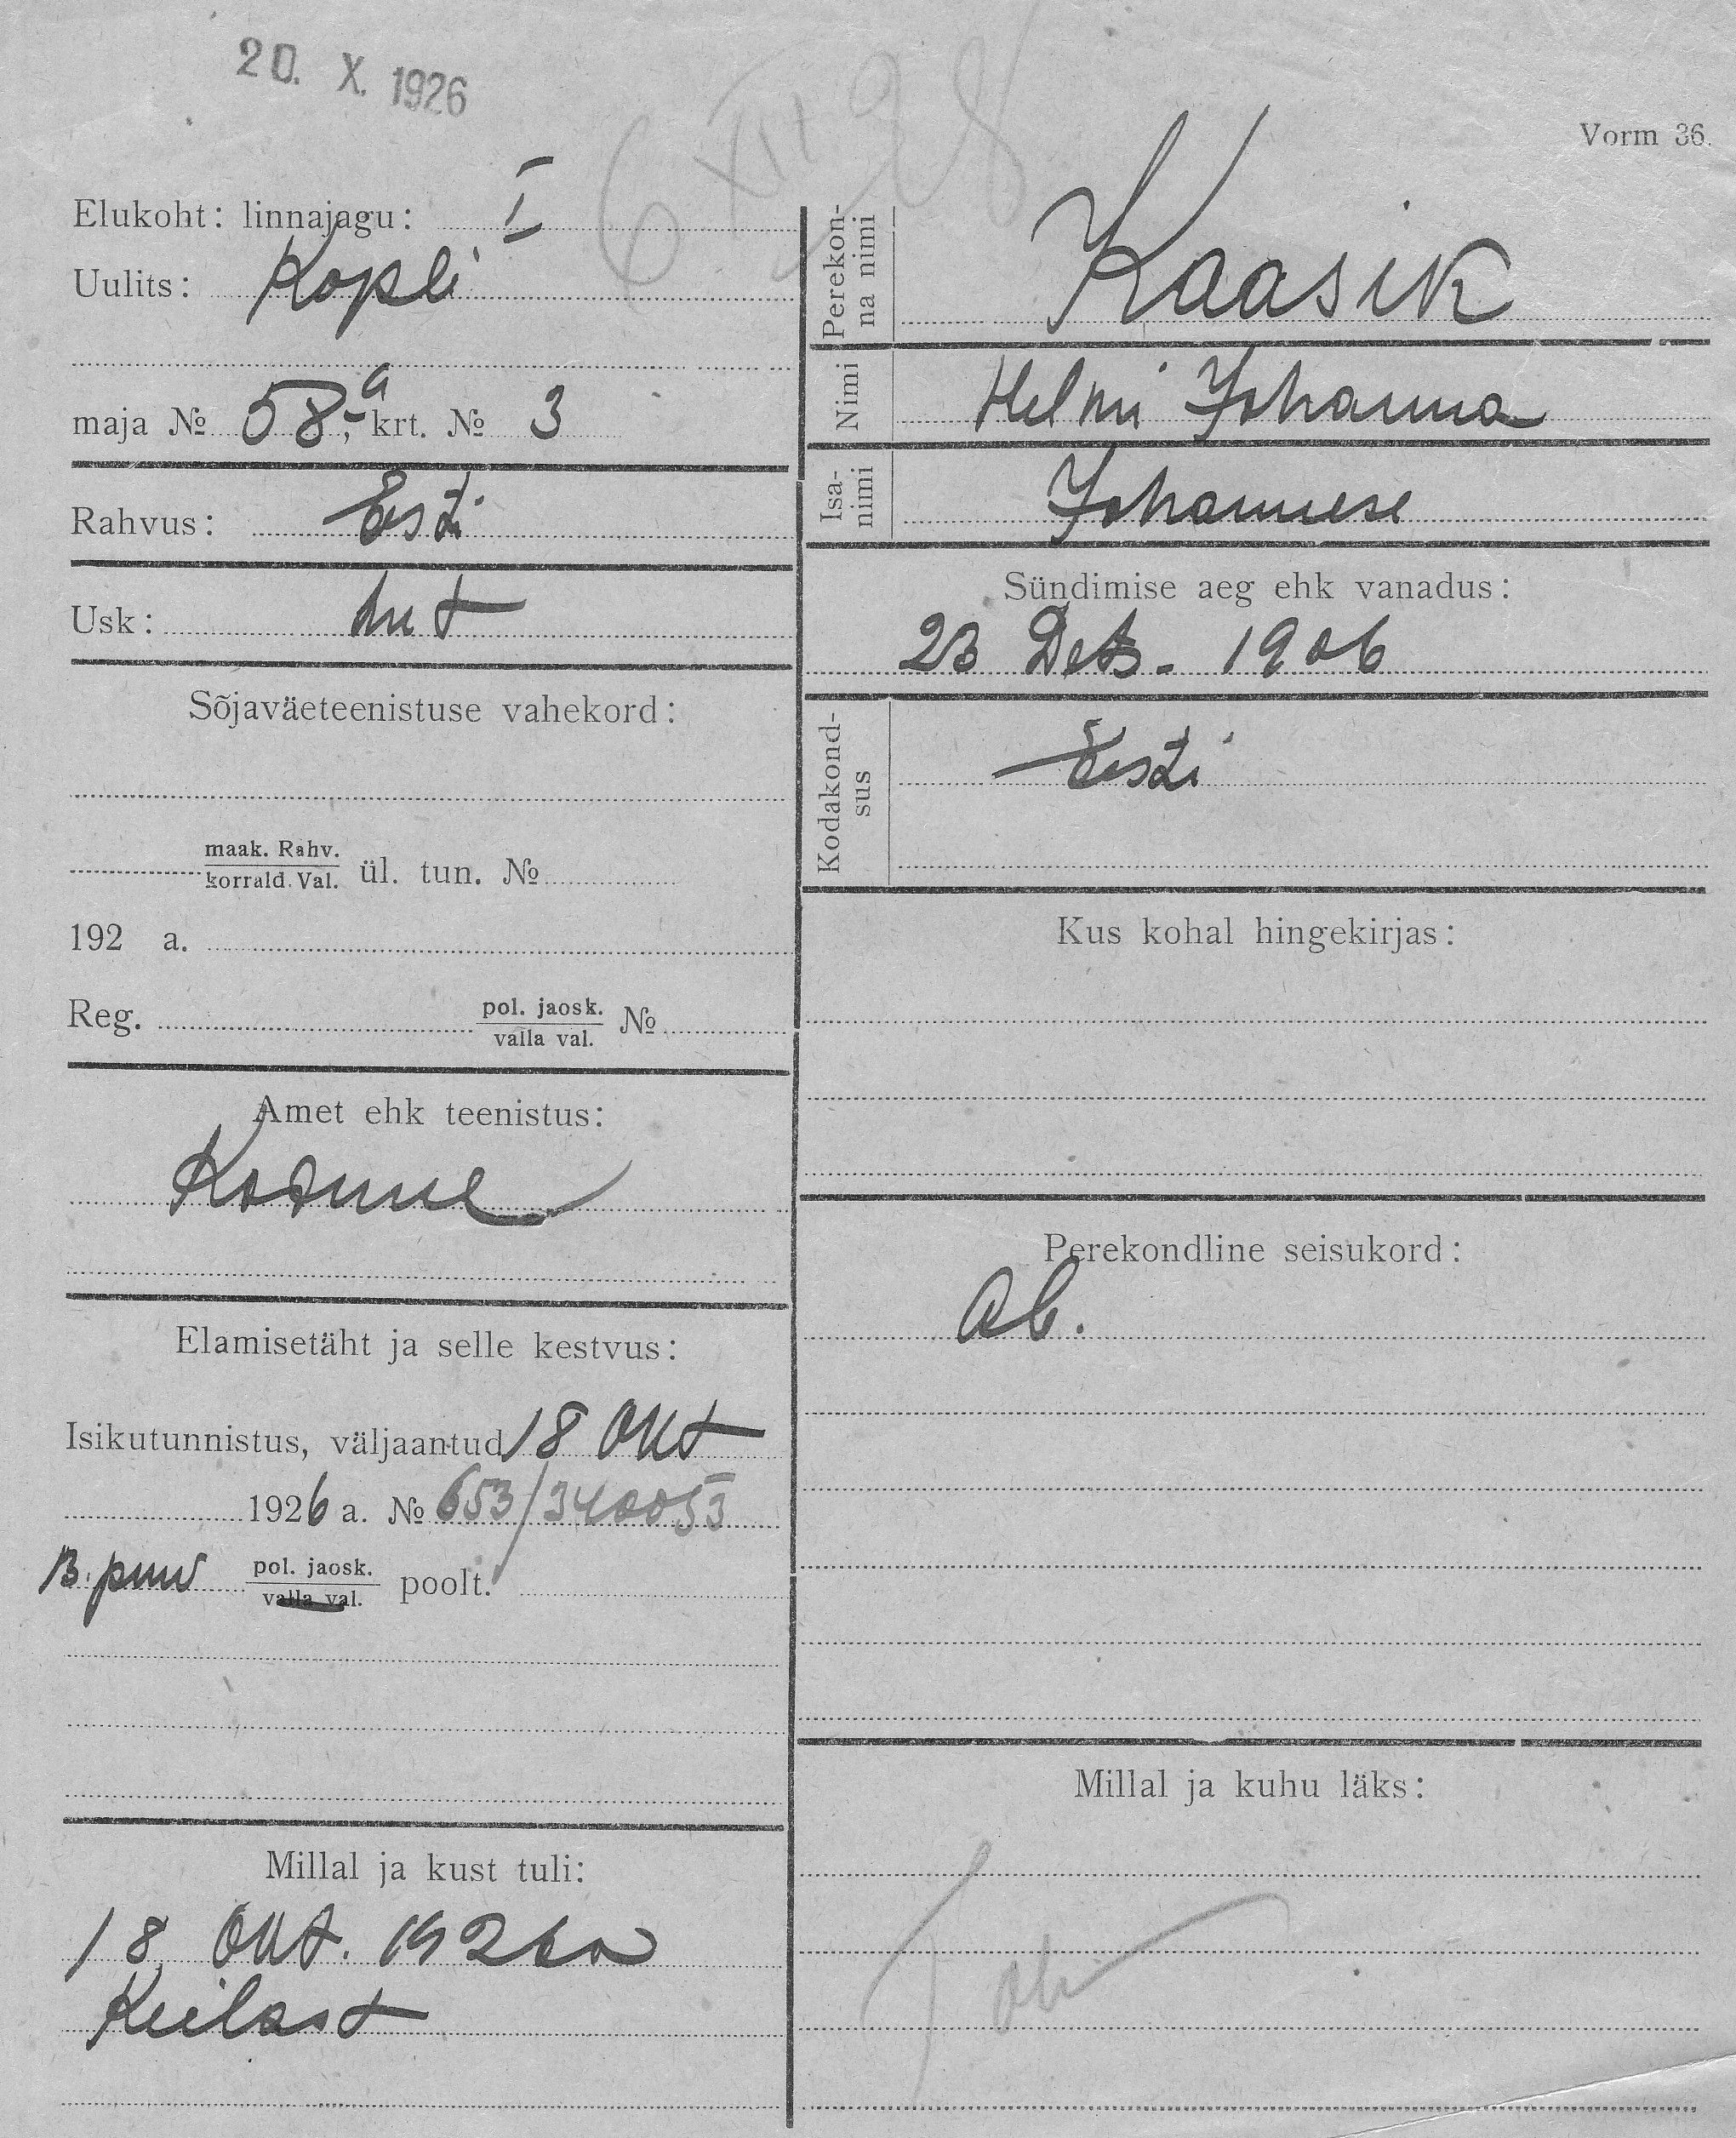 20. X. 1926
6 XII 28
Vorm 36.
Elukoht: linnajagu: I
Uulits: Kopli
maja № 58, a krt. № 3
Rahvus: Eesti
Usk: lut
Sõjaväeteenistuse vahekord:
maak. Rahv.
korrald. Val. ül. tun. №
192 a.
Reg. pol. jaosk. №
valla val.
Amet ehk teenistus:
Kodune
Elamisetäht ja selle kestvus:
Isikutunnistus, väljaantud 18 Okt
1926 a. № 653/340053
B. pol. jaosk. poolt.
valla val.
Millal ja kust tuli:
18. Okt. 1926 a
Keilast
Perekon-
na nimi Kaasik
Nimi Helmi Johanna
Isa-
nimi Johannese
Sündimise aeg ehk vanadus:
23 Dets. 1906
Kodakond-
sus Eesti
Kus kohal hingekirjas:
Perekondline seisukord:
ab.
Millal ja kuhu läks: